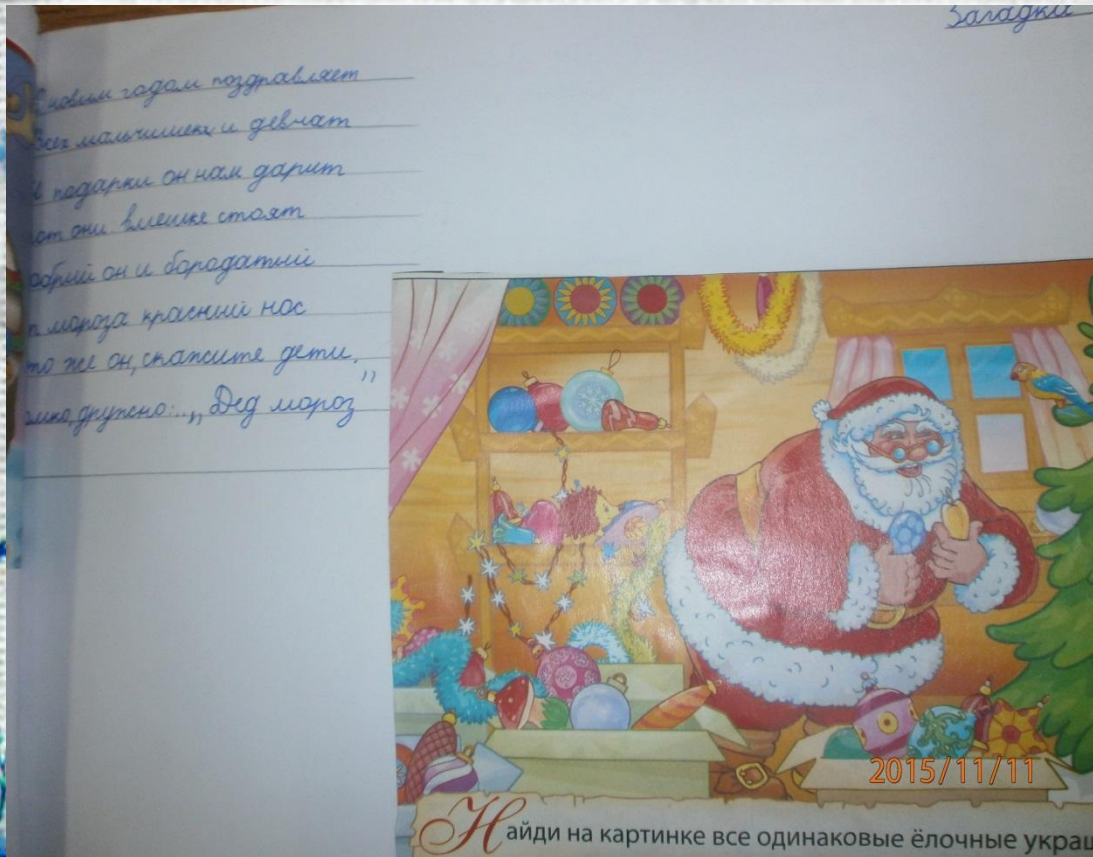 Загадки
новим годом поздравляет
Всех мальчишек и девчат
И подарки он нам дарит
от они вмешке стоят
обрий он и бородатий
т мороза красний нос
то же он, скажите дети,
омко, дружно: „Дед мороз"
2015/11/11
Найди на картинке все одинаковые ёлочные украш